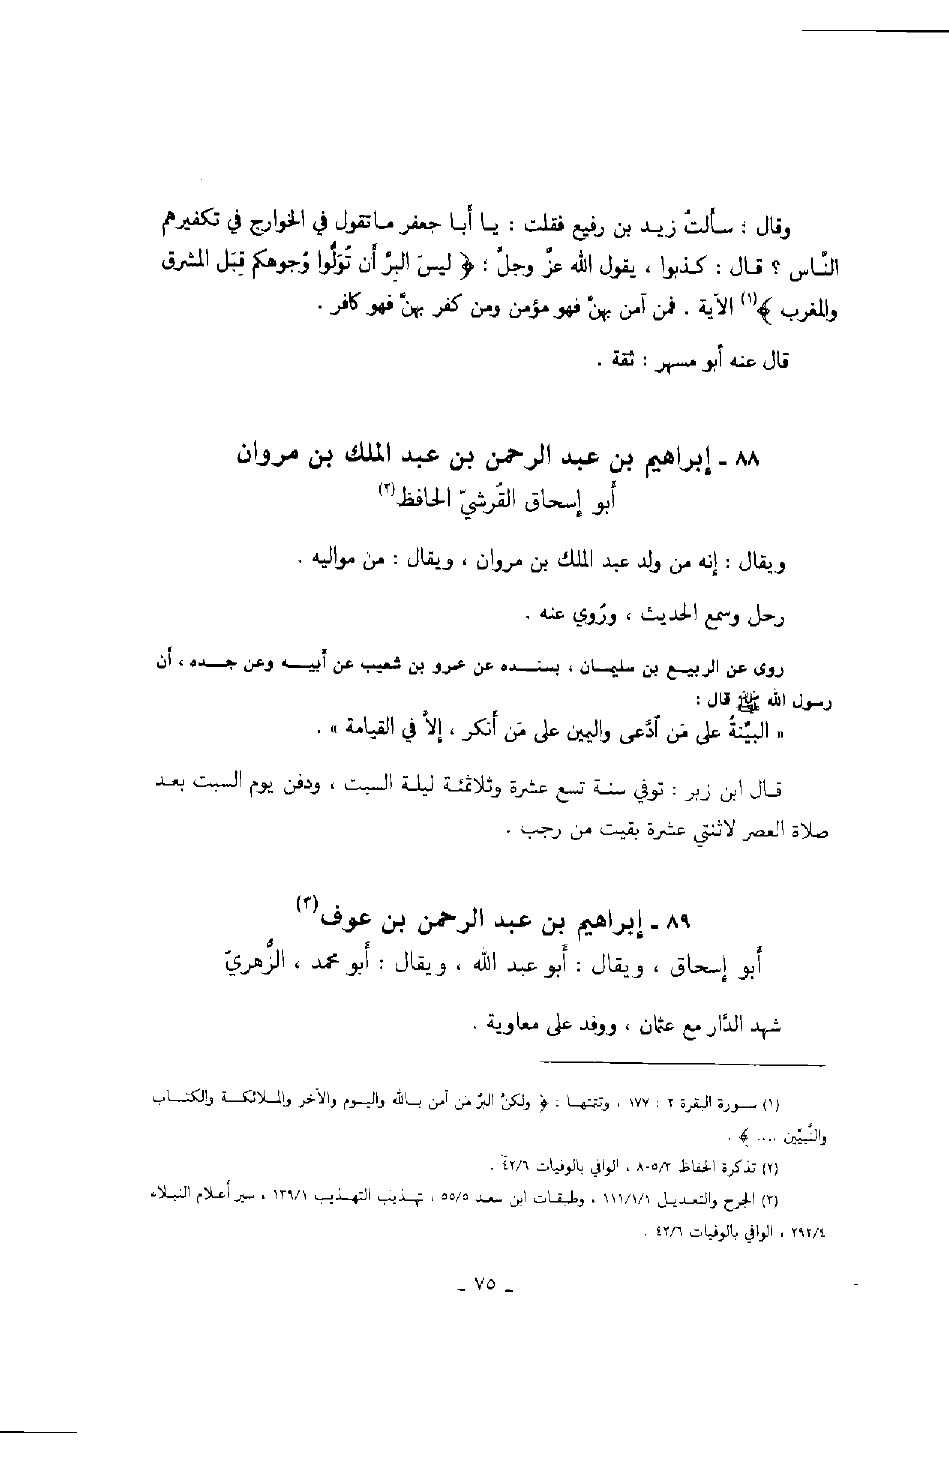 وقال : سألتُ زيد بن رفيع فقلت : يا أبا جعفر ماتقول في الخوارج في تكفيرهم
النَّاس ؟ قال : كذبوا ، يقول الله عزَّ وجلَّ : ﴿ ليسَ البِرَّ أن تُوَلُّوا وُجوهكم قِبَل المشرق
والمغرب ﴾(١) الآية . فمن آمن بهنَّ فهو مؤمن ومن كفر بهنَّ فهو كافر .
قال عنه أبو مسهر : ثقة .
٨٨ ـ إبراهيم بن عبد الرحمن بن عبد الملك بن مروان
أبو إسحاق القُرشيّ الحافظ(٢)
ويقال : إنه من ولد عبد الملك بن مروان ، ويقال : من مواليه .
رحل وسمع الحديث ، ورُوي عنه .
روى عن الربيع بن سليمان ، بسنده عن عمرو بن شعيب عن أبيه وعن جده ، أن
رسول الله ﷺ قال :
« البيِّنةُ على مَن آدَّعى واليمين على مَن أنكر ، إلاَّ في القيامة » .
قال ابن زبر : توفي سنة تسع عشرة وثلاثمئة ليلة السبت ، ودفن يوم السبت بعد
صلاة العصر لاثنتي عشرة بقيت من رجب .
٨٩ ـ إبراهيم بن عبد الرحمن بن عوف(٣)
أبو إسحاق ، ويقال : أبو عبد الله ، ويقال : أبو محمد ، الزُّهريّ
شهد الدَّار مع عثمان ، ووفد على معاوية .
(١) سورة البقرة ٢ : ١٧٧ ، وتتمتها : ﴿ ولكنَّ البرَّ مَن آمن بالله واليوم والآخر والملائكة والكتاب
والنَّبيِّين .... ﴾ .
(٢) تذكرة الحفاظ ٨٠٥/٣ ، الوافي بالوفيات ٤٢/٦ .
(٣) الجرح والتعديل ١١١/١/١ ، وطبقات ابن سعد ٥٥/٥ ، تهذيب التهذيب ١٣٩/١ ، سير أعلام النبلاء
٢٩٢/٤ ، الوافي بالوفيات ٤٢/٦ .
ـ ٧٥ ـ